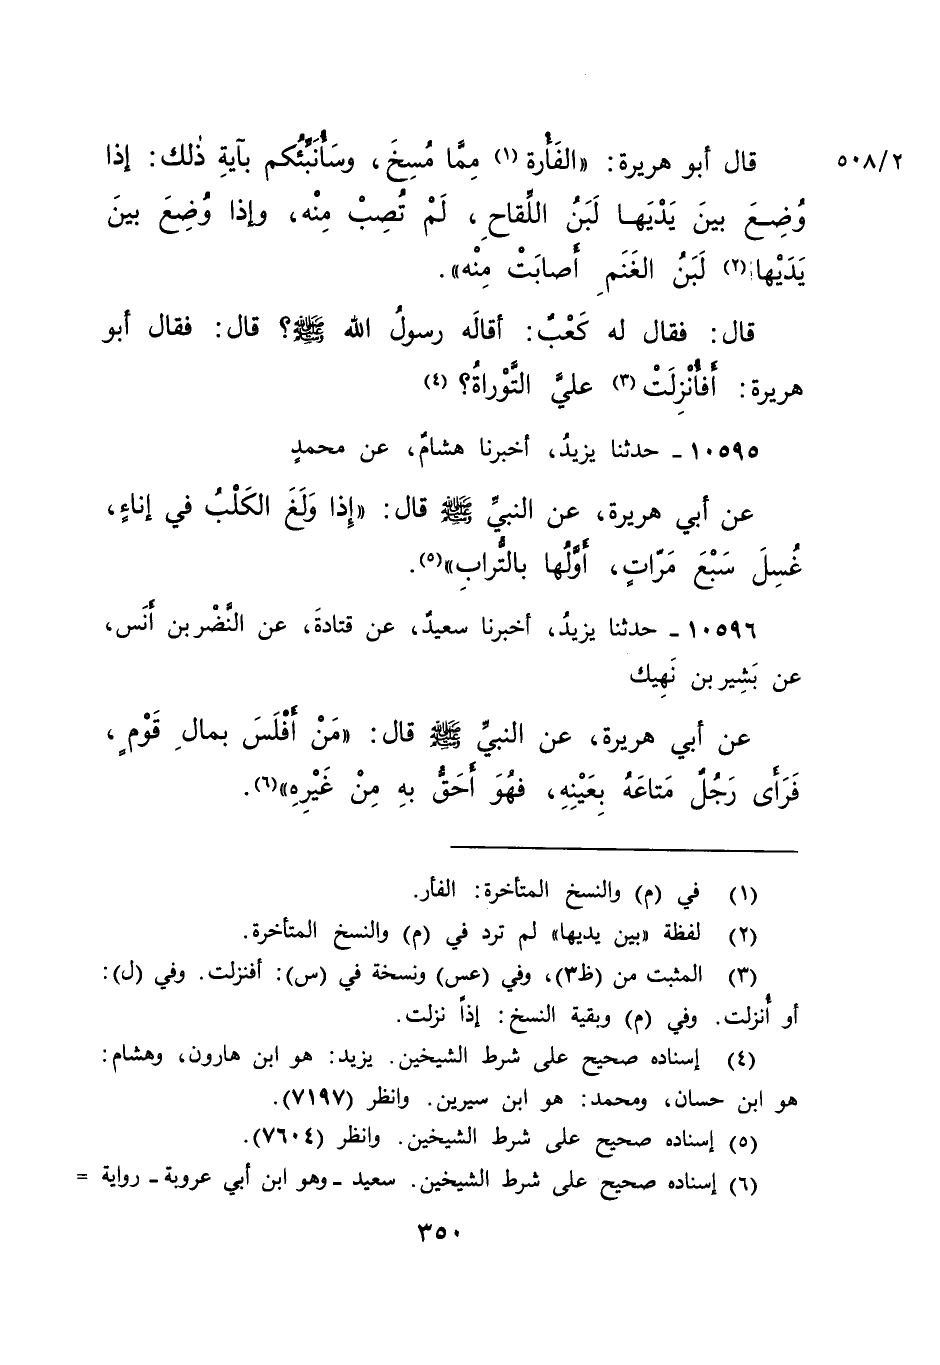 ٥٠٨/٢ قال أبو هريرة: «الفَأْرة (١) مِمَّا مُسِخَ، وسَأُنَبِّئُكم بآيةِ ذٰلك: إذا
وُضِعَ بينَ يَدْيَها لَبَنُ اللِّقاحِ، لَمْ تُصِبْ مِنْه، وإذا وُضِعَ بينَ
يَدَيْها(٢) لَبَنُ الغَنَمِ أَصابَتْ مِنْه».
قال: فقال له كَعْبٌ: أقالَه رسولُ الله ﷺ؟ قال: فقال أبو
هريرة: أَفأُنْزِلَتْ (٣) عليَّ التَّوْراةُ؟ (٤)
١٠٥٩٥ـ حدثنا يزيدُ، أخبرنا هشامٌ، عن محمدٍ
عن أبي هريرة، عن النبيِّ ﷺ قال: «إِذا وَلَغَ الكَلْبُ في إناءٍ،
غُسِلَ سَبْعَ مَرَّاتٍ، أَوَّلُها بالتُّرابِ»(٥).
١٠٥٩٦ـ حدثنا يزيدُ، أخبرنا سعيدٌ، عن قتادةَ، عن النَّضْر بن أَنَس،
عن بَشِير بن نَهِيك
عن أبي هريرة، عن النبيِّ ﷺ قال: «مَنْ أَفْلَسَ بمالِ قَوْمٍ،
فَرَأَى رَجُلٌ مَتاعَهُ بِعَيْنِهِ، فهُوَ أَحَقُّ بهِ مِنْ غَيْرِهِ»(٦).
(١) في (م) والنسخ المتأخرة: الفأر.
(٢) لفظة «بين يديها» لم ترد في (م) والنسخ المتأخرة.
(٣) المثبت من (ظ٣)، وفي (عس) ونسخة في (س): أفنزلت. وفي (ل):
أو أُنزلت. وفي (م) وبقية النسخ: إذاً نزلت.
(٤) إسناده صحيح على شرط الشيخين. يزيد: هو ابن هارون، وهشام:
هو ابن حسان، ومحمد: هو ابن سيرين. وانظر (٧١٩٧).
(٥) إسناده صحيح على شرط الشيخين. وانظر (٧٦٠٤).
(٦) إسناده صحيح على شرط الشيخين. سعيد ـ وهو ابن أبي عروبة ـ رواية =
٣٥٠